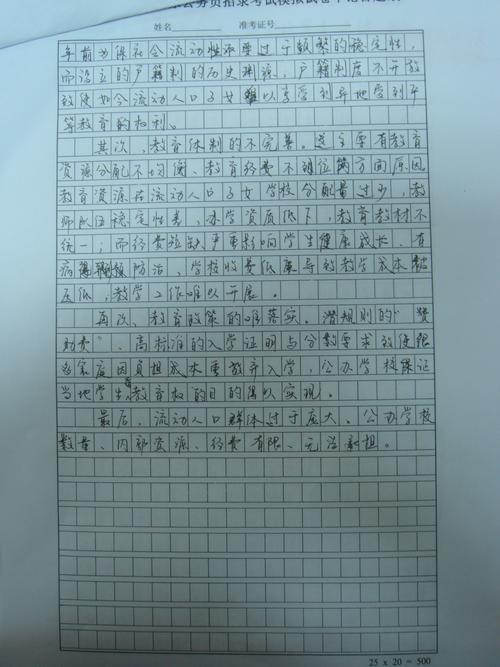 公务员招录考试模拟试卷
姓名 准考证号
年前为保社会流动性不要过于频繁的稳定性,
而设立的户籍制的历史渊源,户籍制度不开放
致使如今流动人口子女难以享受到异地受到平
等教育的权利。
其次,教育体制的不完善。这主要有教育
资源分配不均衡、教育经费不到位两方面原因。
教育资源在流动人口子女学校分配量过少,教
师队伍稳定性差,办学资质低下,教育教材不
统一;而经费短缺严重影响学生健康成长、有
病得不到防治、学校收费低廉导致教学成本
压低,教学工作难以开展。
再次、教育政策的难落实。潜规则的“赞
助费”、高标准的入学证明与分数要求致使很
多家庭因负担成本重放弃入学,公办学校保证
当地学生教育权的目的难以实现。
最后,流动人口群体过于庞大、公办学校
数量、内部资源、经费有限、无法承担。
25 x 20 = 500